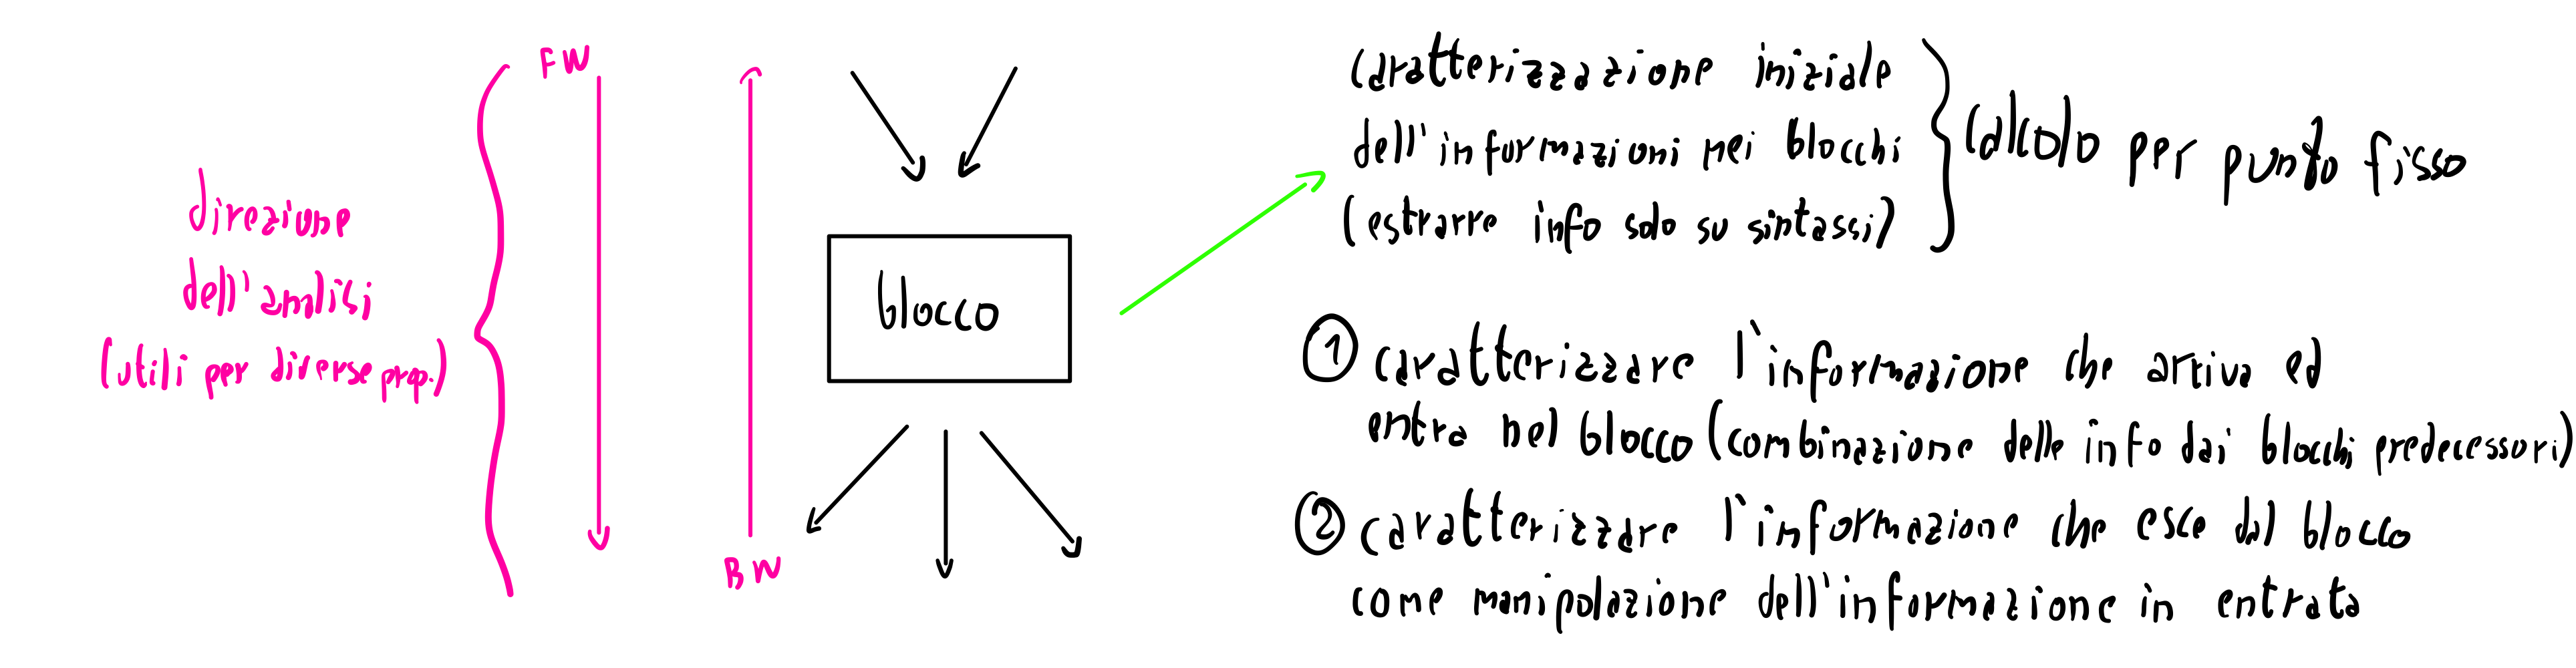 FW
direzione
dell'analisi
(utili per diverse prop.)
BW
blocco
caratterizzazione iniziale
dell'informazioni nei blocchi
(estrarre info solo su sintassi)
calcolo per punto fisso
① caratterizzare l'informazione che arriva ed
entra nel blocco (combinazione delle info dai blocchi predecessori)
② caratterizzare l'informazione che esce dal blocco
come manipolazione dell'informazione in entrata